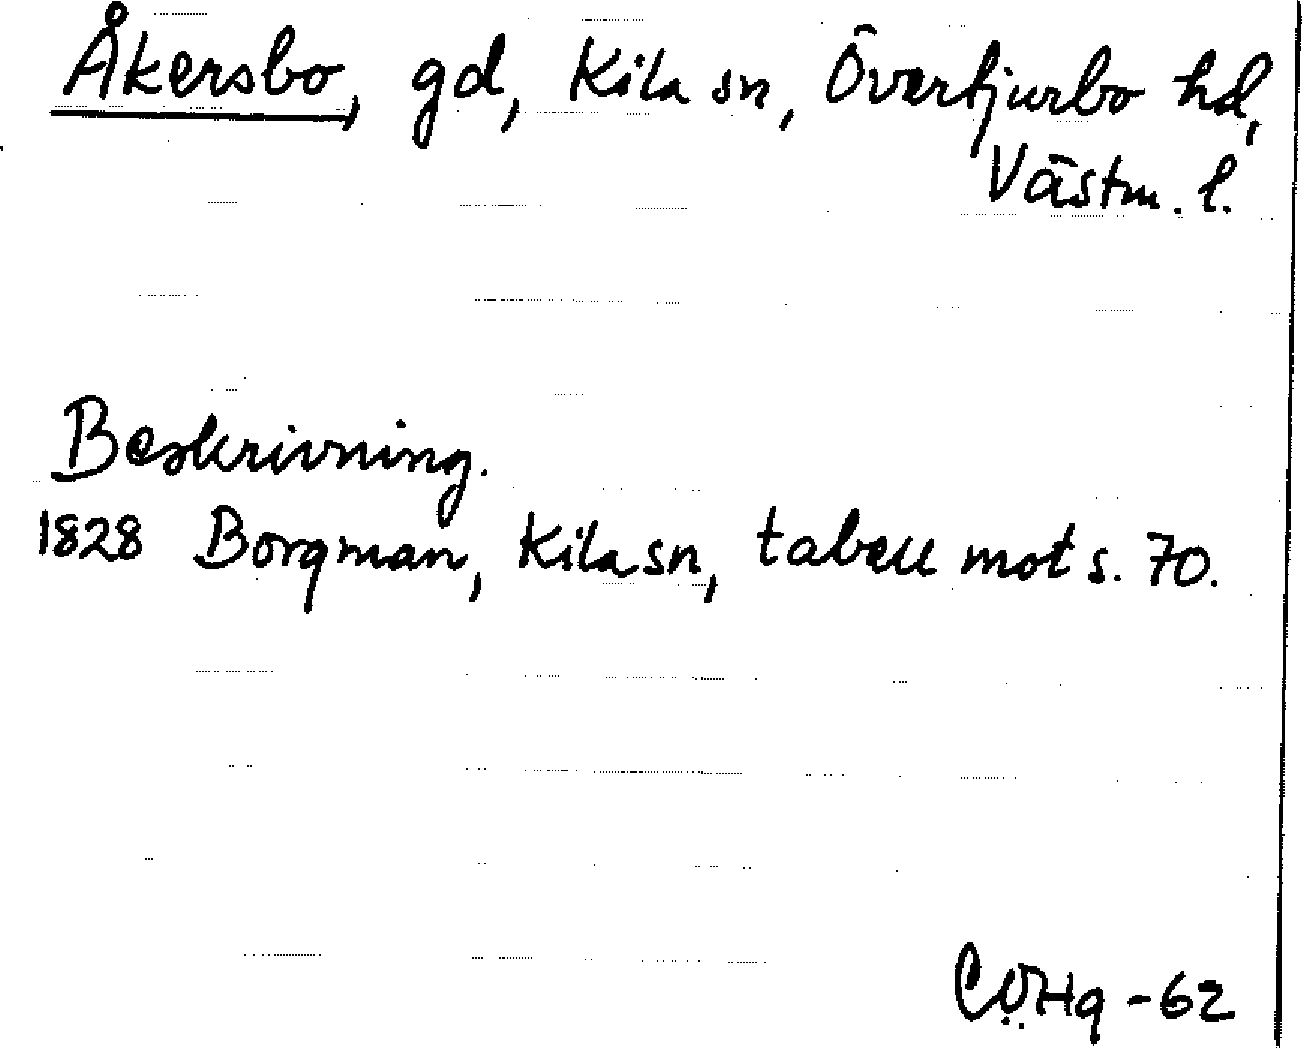 Åkersbo, gd, Kila sn, Övertjurbo hd,
Västm. l.
Beskrivning.
1828 Borgman, Kila sn, tabell mot s. 70.
CÖHg -62